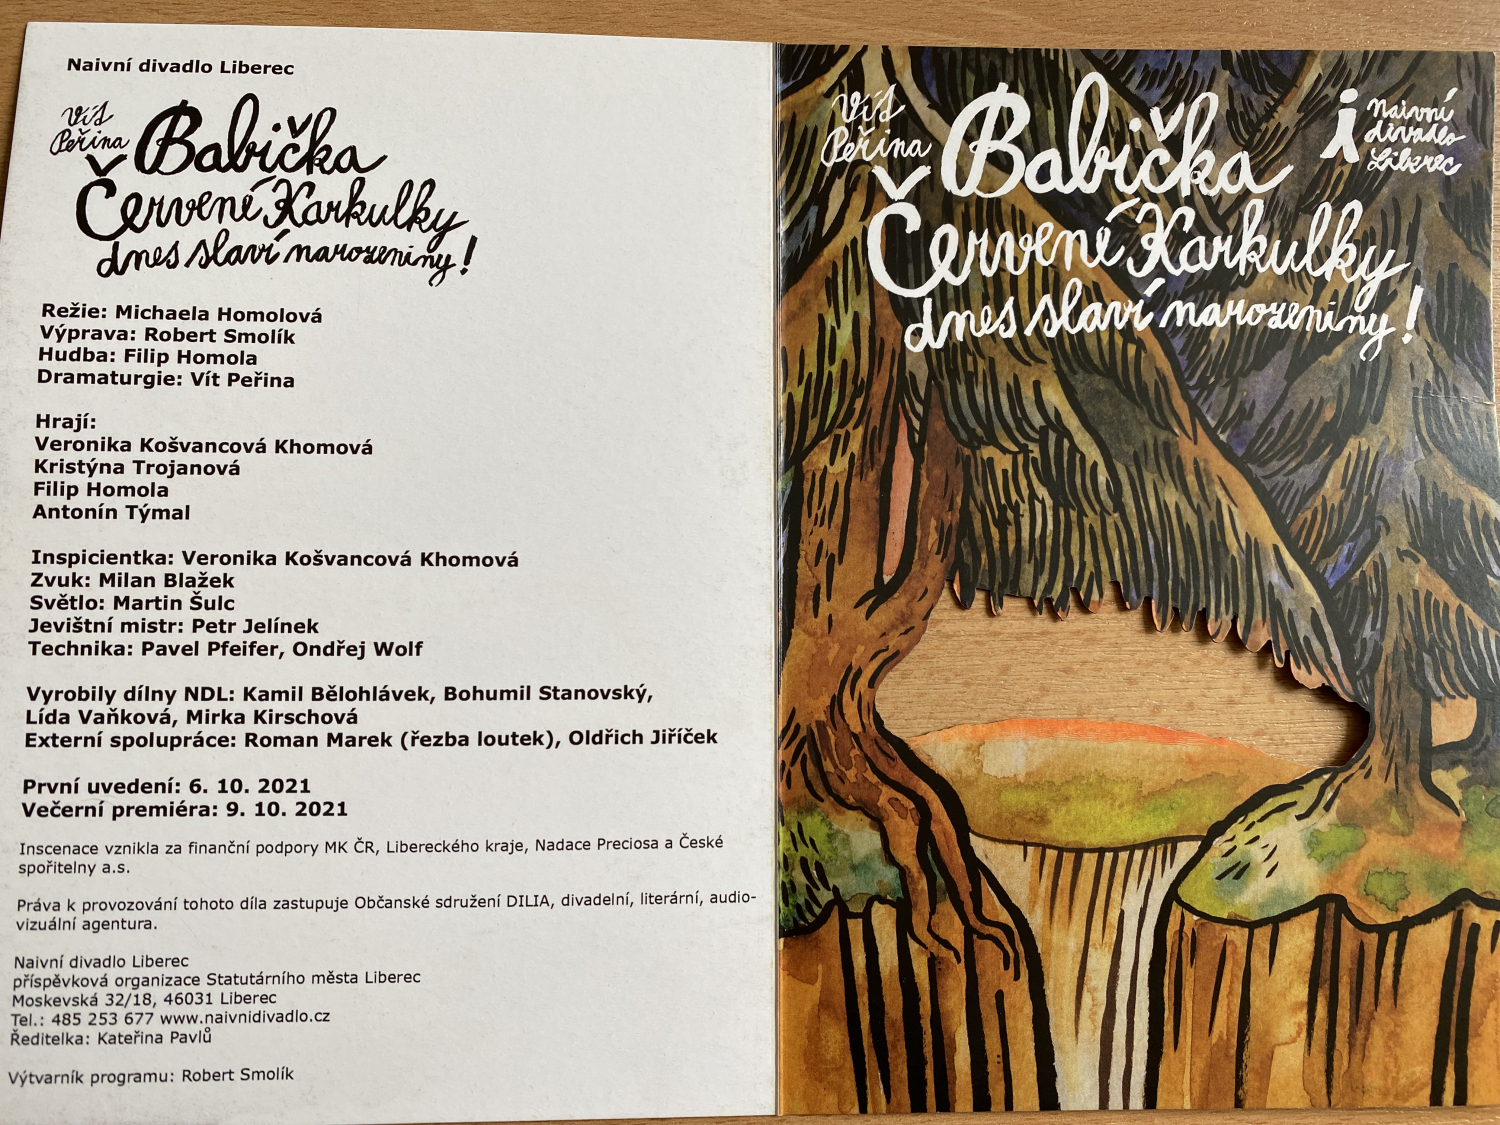 Naivní divadlo Liberec
Vít
Peřina
Babička
Červené Karkulky
dnes slaví narozeniny!
Režie: Michaela Homolová
Výprava: Robert Smolík
Hudba: Filip Homola
Dramaturgie: Vít Peřina
Hrají:
Veronika Košvancová Khomová
Kristýna Trojanová
Filip Homola
Antonín Týmal
Inspicientka: Veronika Košvancová Khomová
Zvuk: Milan Blažek
Světlo: Martin Šulc
Jevištní mistr: Petr Jelínek
Technika: Pavel Pfeifer, Ondřej Wolf
Vyrobily dílny NDL: Kamil Bělohlávek, Bohumil Stanovský,
Lída Vaňková, Mirka Kirschová
Externí spolupráce: Roman Marek (řezba loutek), Oldřich Jiříček
První uvedení: 6. 10. 2021
Večerní premiéra: 9. 10. 2021
Inscenace vznikla za finanční podpory MK ČR, Libereckého kraje, Nadace Preciosa a České
spořitelny a.s.
Práva k provozování tohoto díla zastupuje Občanské sdružení DILIA, divadelní, literární, audio-
vizuální agentura.
Naivní divadlo Liberec
příspěvková organizace Statutárního města Liberec
Moskevská 32/18, 46031 Liberec
Tel.: 485 253 677 www.naivnidivadlo.cz
Ředitelka: Kateřina Pavlů
Výtvarník programu: Robert Smolík
Vít
Peřina
Babička
Červené Karkulky
dnes slaví narozeniny!
Naivní
divadlo
Liberec